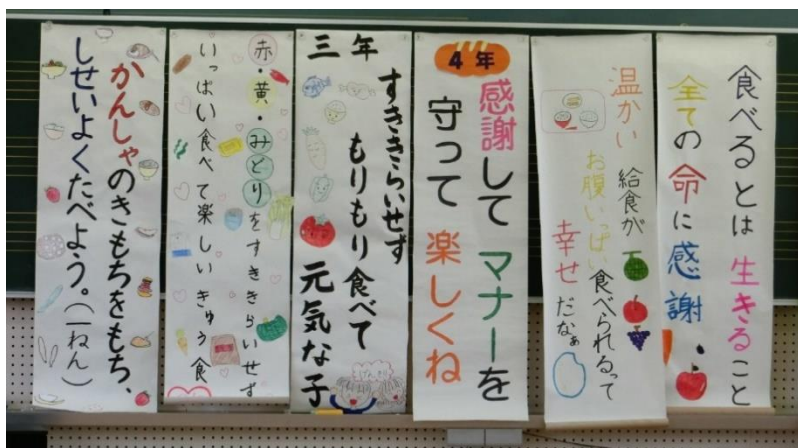 食べるとは 生きること
全ての 命に 感謝
温かい 給食が
お腹いっぱい 食べられるって
幸せ だなぁ
4年
感謝して マナーを
守って 楽しくね
三年
すききらいせず
もりもり食べて
元気な子
赤・黄・みどりをすききらいせず
いっぱい食べて楽しいきゅう食
かんしゃのきもちをもち、
しせいよくたべよう。(一ねん)